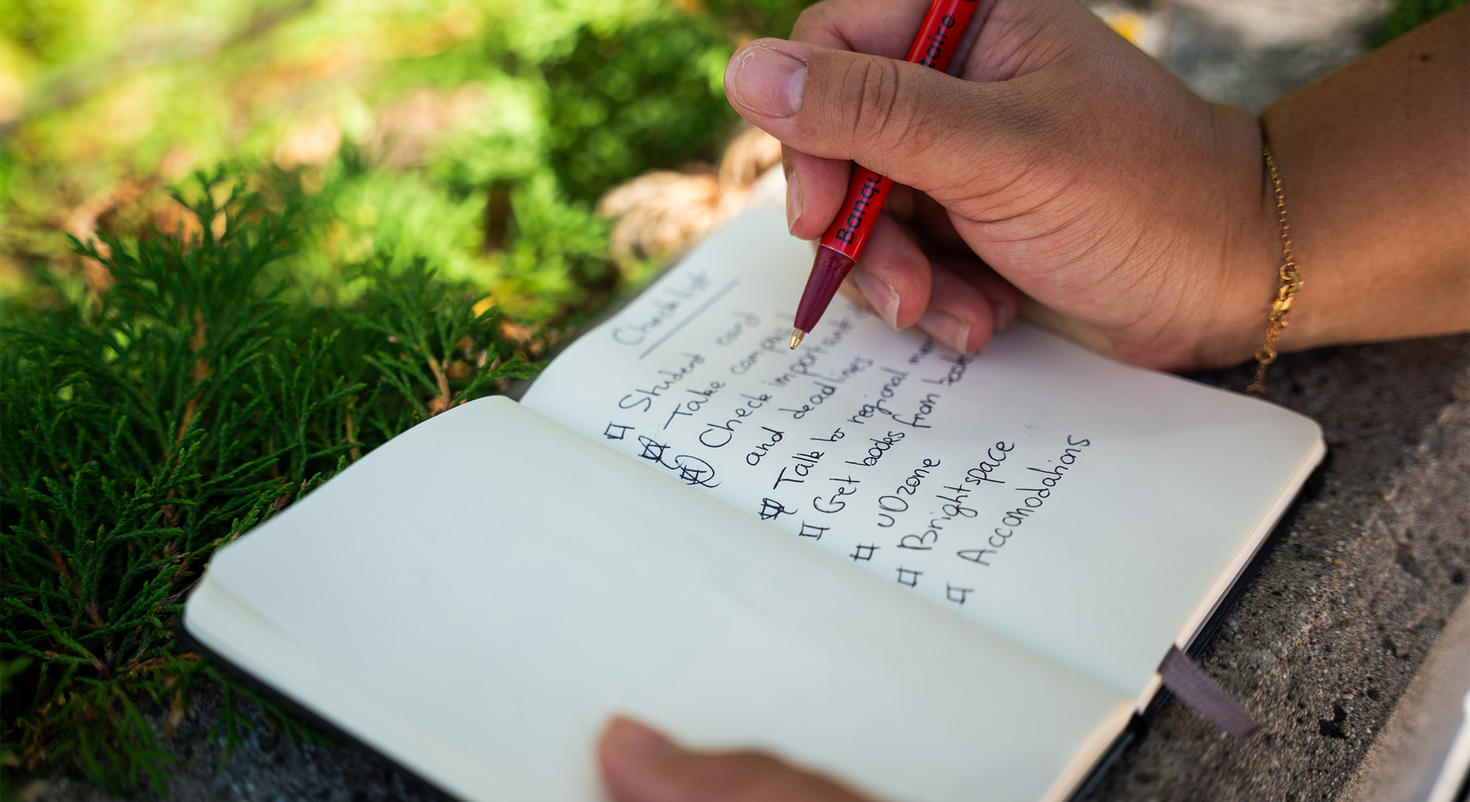 Checklist
Student card
Take camp
Check important
and deadlines
Talk to regional
Get books from
uOzone
Brightspace
Accomodations
Banq aire